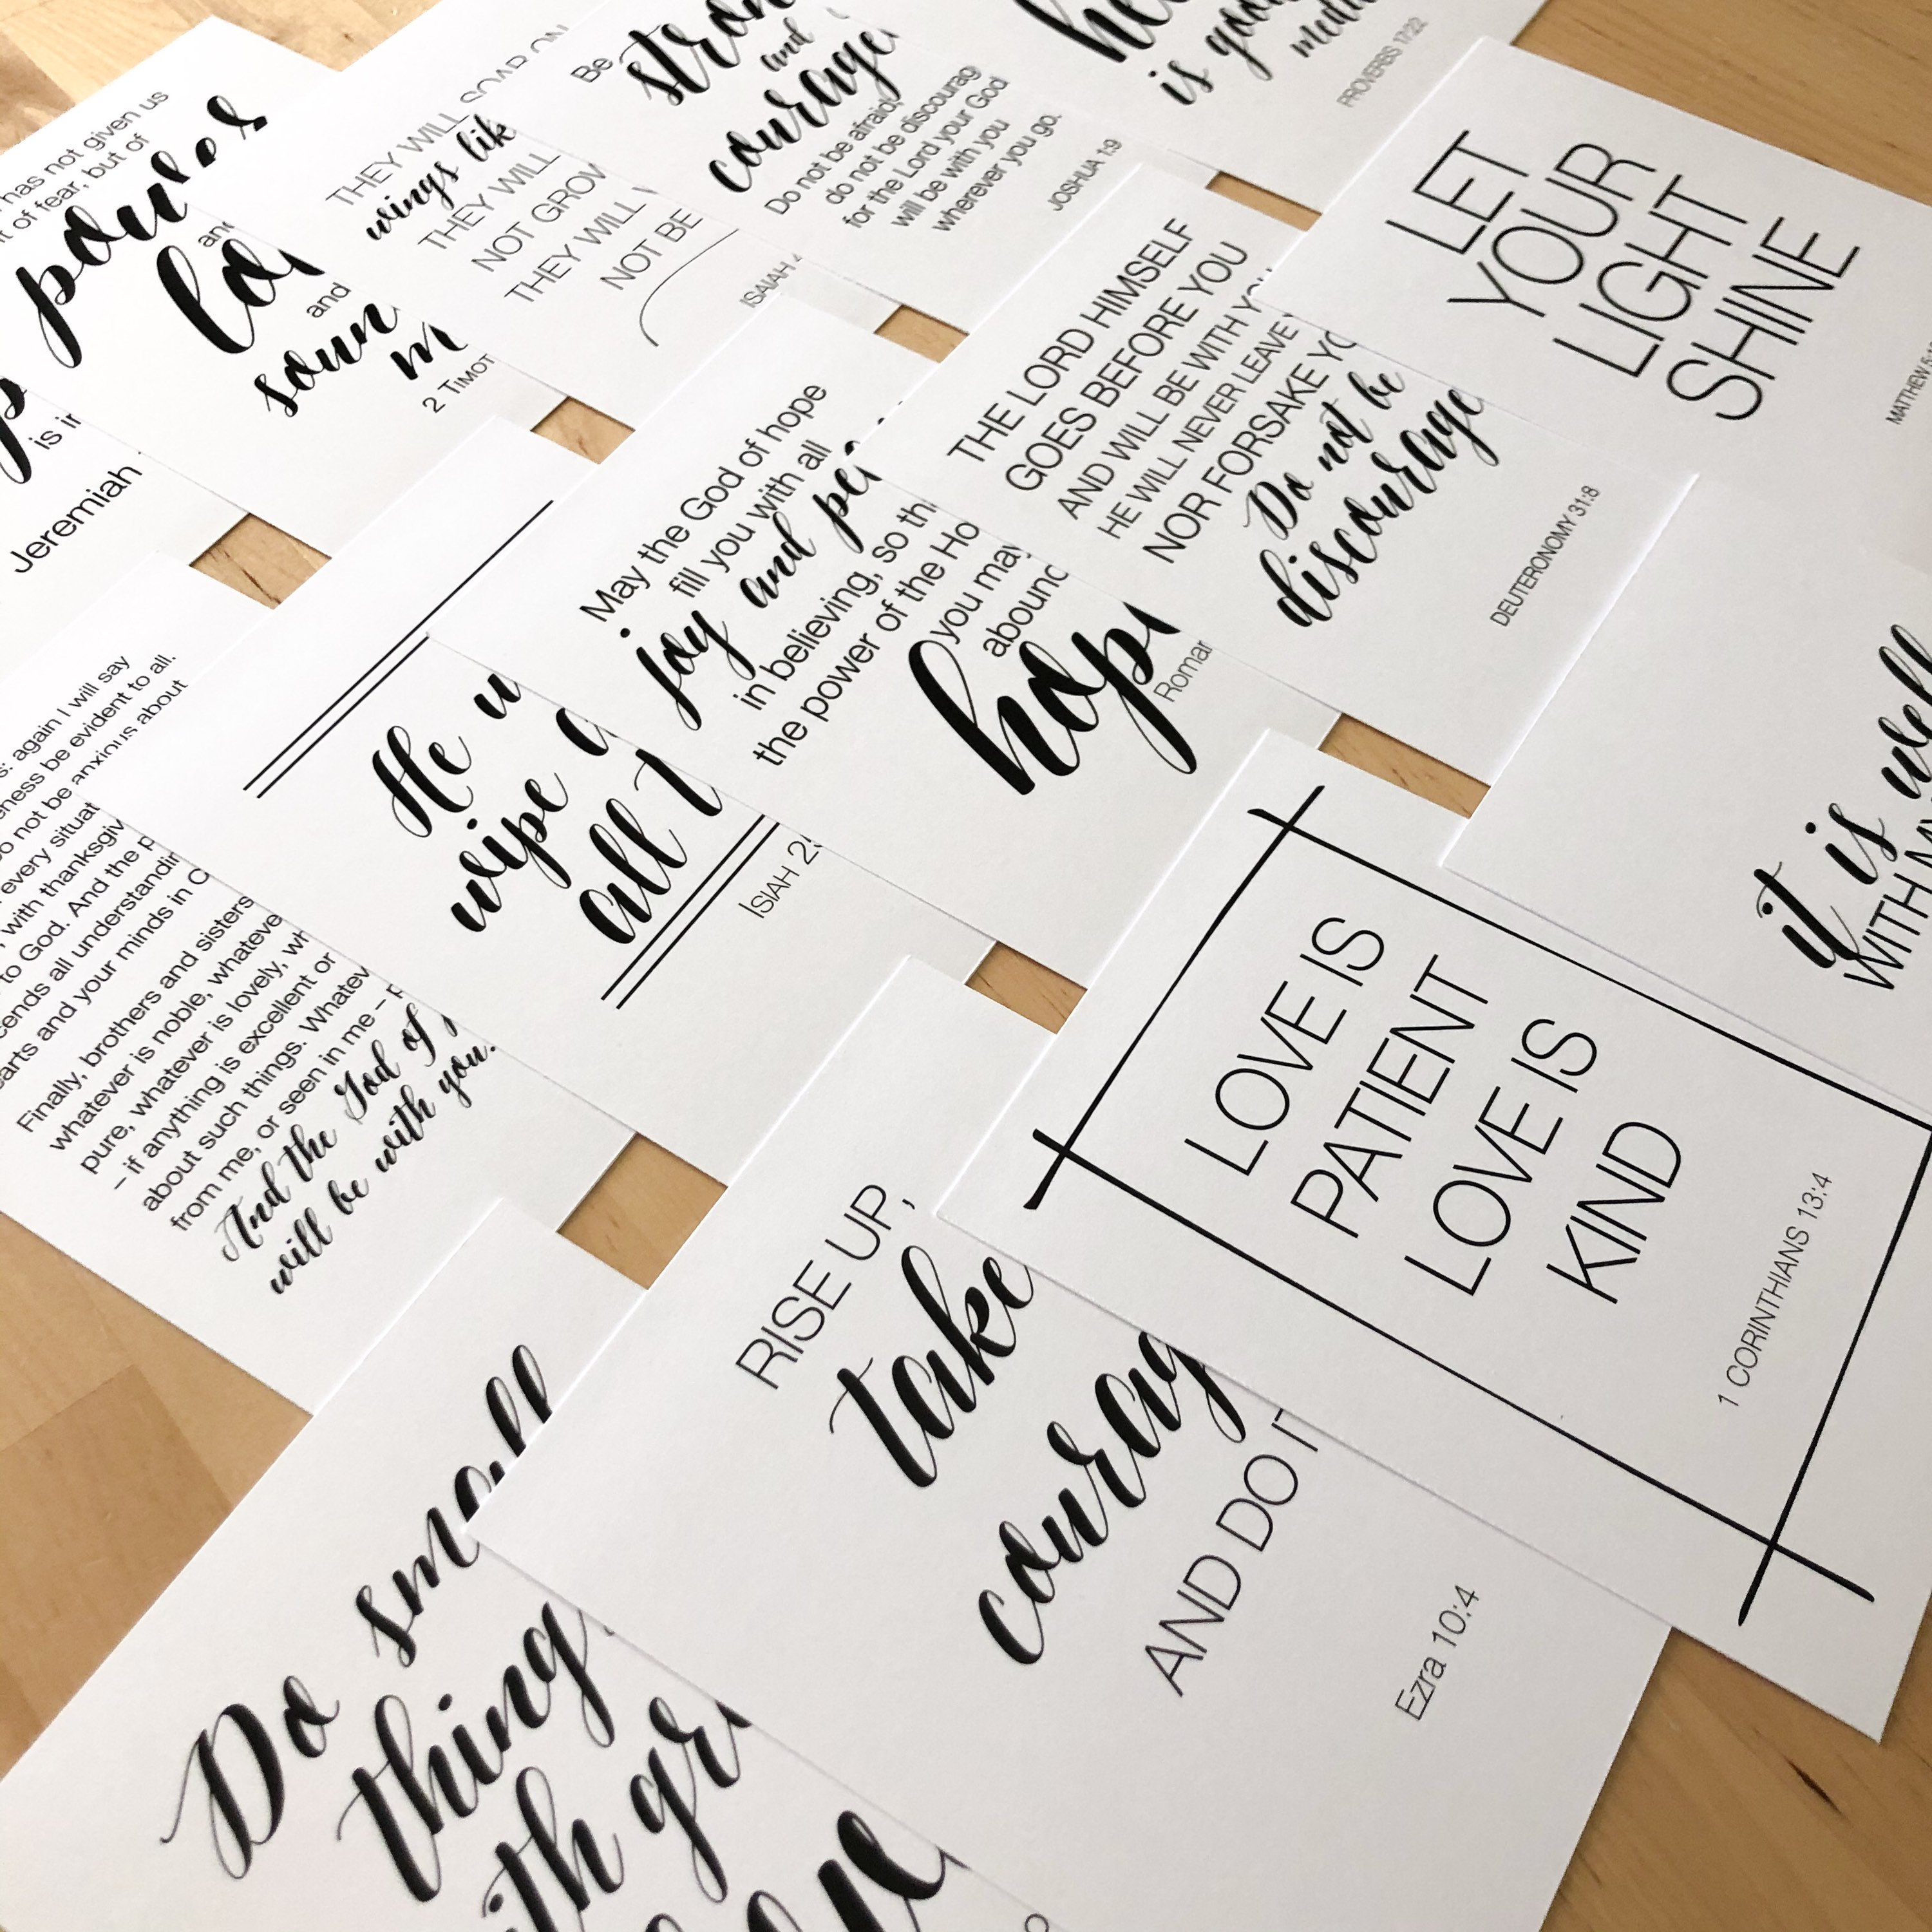 has not given us
of fear, but of
power
and
and
soun
2 TIMOT
is in
Jeremiah
THEY WILL SOAR ON
wings lik
THEY WILL
NOT GROW
THEY WILL
NOT BE
ISAIAH 4
Be
strong
and
courage
Do not be afraid
do not be discourag
for the Lord your God
will be with you
wherever you go.
JOSHUA 1:9
is good
medi
PROVERBS 17:22
LET
YOUR
LIGHT
SHINE
MATTHEW 5:1
THE LORD HIMSELF
GOES BEFORE YOU
AND WILL BE WITH YOU
HE WILL NEVER LEAVE Y
NOR FORSAKE YO
Do not be
discourage
DEUTERONOMY 31:8
May the God of hope
fill you with all
joy and pe
in believing, so th
the power of the Ho
you may
abound
hop
Roman
it is well
WITH MY
He w
wipe
all t
ISIAH 25
: again I will say
eness be evident to all.
o not be anxious about
every situat
, with thanksgiv
to God. And the p
cends all understandin
arts and your minds in C
Finally, brothers and sisters
whatever is noble, whateve
pure, whatever is lovely, wh
– if anything is excellent or
about such things. Whatev
from me, or seen in me – p
And the God of
will be with you.
LOVE IS
PATIENT
LOVE IS
KIND
1 CORINTHIANS 13:4
RISE UP,
take
courag
AND DO IT
Ezra 10:4
Do small
thing
ith gre